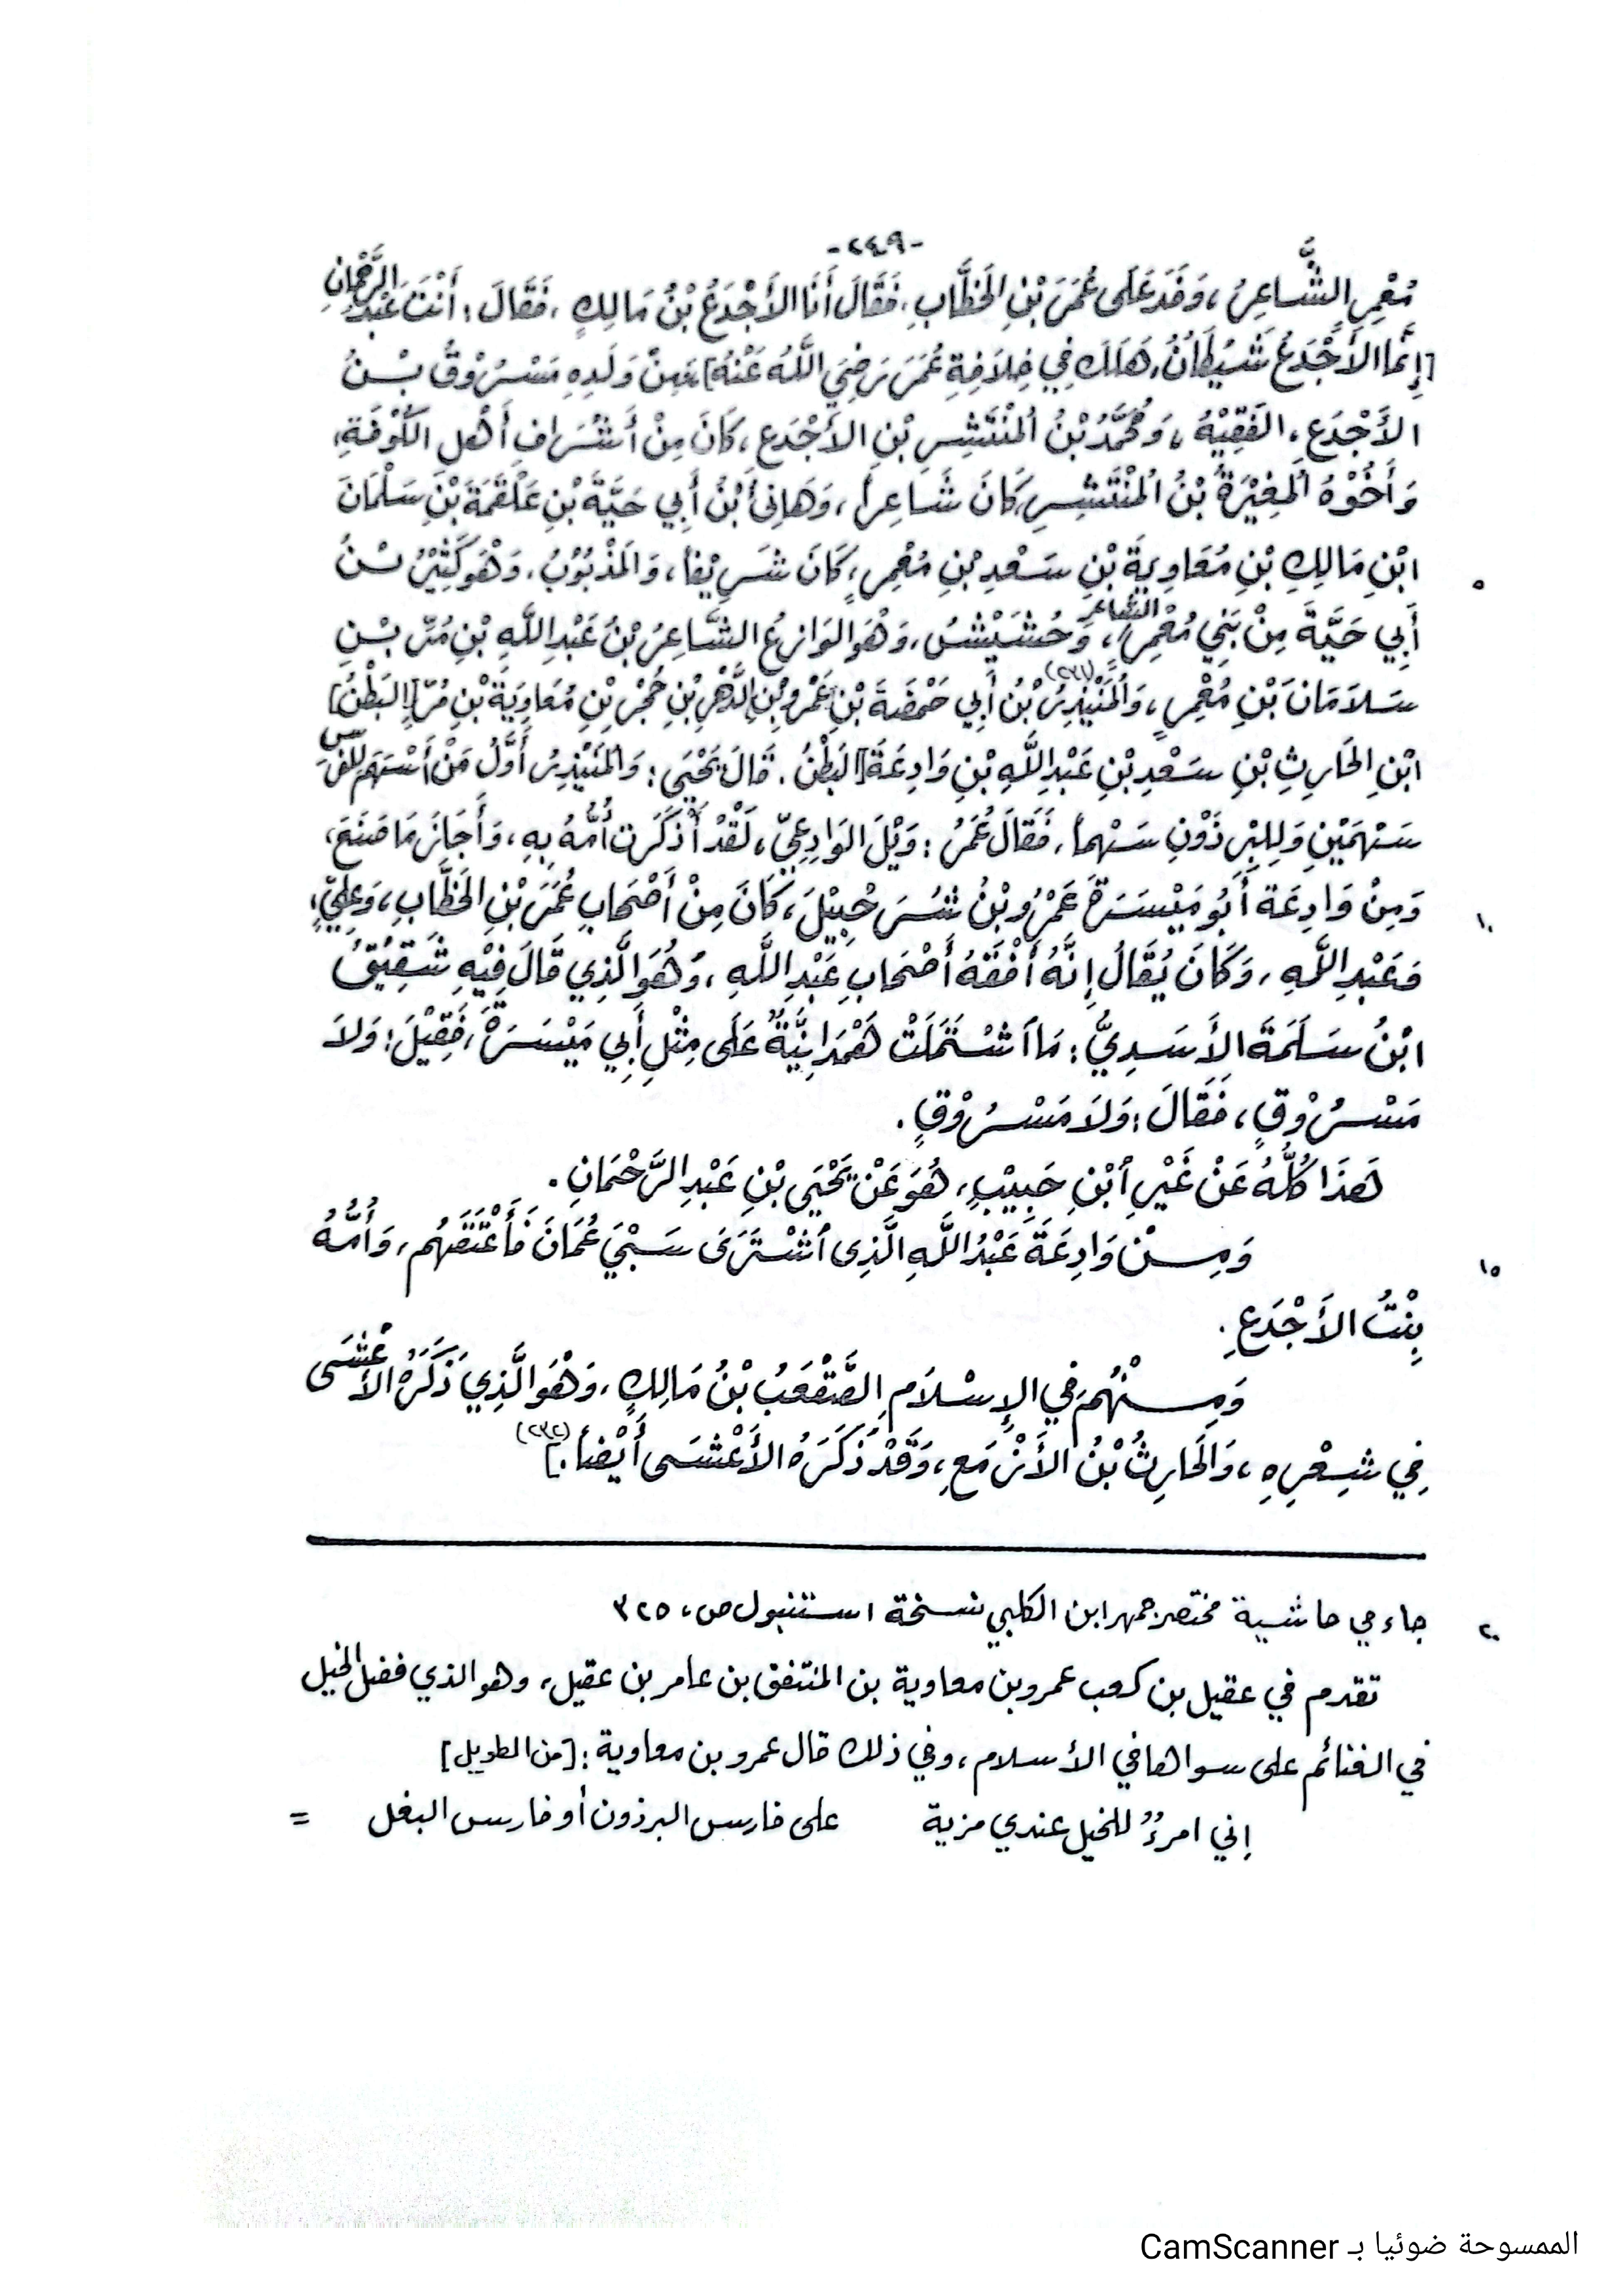 -٢٤٩-
مُعْمِرٍ الشَّاعِرُ، وَفَدَ عَلَى عُمَرَ بْنِ الخَطَّابِ، فَقَالَ أَنَا الأَجْدَعُ بْنُ مَالِكٍ، فَقَالَ: أَنْتَ عَبْدُ الرَّحْمَانِ
[إِنَّمَا الأَجْدَعُ شَيْطَانٌ، هَلَكَ فِي خِلَافَةِ عُمَرَ رَضِيَ اللَّهُ عَنْهُ] فَمِنْ وَلَدِهِ مَسْرُوْقُ بْنُ
الأَجْدَعِ، الفَقِيْهُ، وَمُحَمَّدُ بْنُ المُنْتَشِرِ بْنِ الأَجْدَعِ، كَانَ مِنْ أَشْرَافِ أَهْلِ الكُوْفَةِ،
وَأَخُوْهُ المُغِيْرَةُ بْنُ المُنْتَشِرِ كَانَ شَاعِراً، وَهَانِئُ ابْنُ أَبِي حَيَّةَ بْنِ عَلْقَمَةَ بْنِ سَلْمَانَ
ابْنِ مَالِكِ بْنِ مُعَاوِيَةَ بْنِ سَعْدِ بْنِ مُعْمِرٍ، كَانَ شَرِيْفاً، وَالمَذْبُوْبُ، وَهْوَ كَثِيْرُ بْنُ
أَبِي حَيَّةَ مِنْ بَنِي مُعْمِرٍ الشاعر، وَحُشَيْشٌ، وَهْوَ الوَازِعُ الشَّاعِرُ بْنُ عَبْدِ اللَّهِ بْنِ مُرِّ بْنِ
سَلَامَانَ بْنِ مُعْمِرٍ، وَالمُنَيْذِرُ (٢٣١) بْنُ أَبِي حَمْضَةَ بْنِ عَمْرِو بْنِ الدَّهْرِ بْنِ حُجْرِ بْنِ مُعَاوِيَةَ بْنِ مُرِّ [البَطْنُ]
ابْنِ الحَارِثِ بْنِ سَعْدِ بْنِ عَبْدِ اللَّهِ بْنِ وَادِعَةَ [البَطْنُ. قَالَ يَحْيَى: وَالمُنَيْذِرُ أَوَّلُ مَنْ أَسْهَمَ لِلْفَرَسِ
سَهْمَيْنِ وَلِلْبِرْذَوْنِ سَهْماً، فَقَالَ عُمَرُ: وَيْلَ الوَادِعِيِّ، لَقَدْ أَذْكَرَت أُمُّهُ بِهِ، وَأَجَازَ مَا صَنَعَ،
وَمِنْ وَادِعَة أَبُو مَيْسَرَةَ عَمْرُو بْنُ شُرَحْبِيْلَ، كَانَ مِنْ أَصْحَابِ عُمَرَ بْنِ الخَطَّابِ، وَعَلِيٍّ،
وَعَبْدِ اللَّهِ، وَكَانَ يُقَالُ إِنَّهُ أَفْقَهُ أَصْحَابِ عَبْدِ اللَّهِ، وَهُوَ الَّذِي قَالَ فِيْهِ شَقِيْقُ
ابْنُ سَلَمَةَ الأَسَدِيُّ: مَا اشْتَمَلَتْ هَمْدَانِيَّةٌ عَلَى مِثْلِ أَبِي مَيْسَرَةَ، فَقِيْلَ: وَلاَ
مَسْرُوْقٍ، فَقَالَ: وَلاَ مَسْرُوْقٍ.
هَذَا كُلُّهُ عَنْ غَيْرِ ابْنِ حَبِيْبٍ، هُوَ عَنْ يَحْيَى بْنِ عَبْدِ الرَّحْمَانِ.
وَمِنْ وَادِعَةَ عَبْدُ اللَّهِ الَّذِى اشْتَرَى سَبْيَ عُمَانَ فَأَعْتَقَهُم، وَأُمُّهُ
بِنْتُ الأَجْدَعِ.
وَمِنْهُمْ فِي الإِسْلَامِ الصَّقْعَبُ بْنُ مَالِكٍ، وَهْوَ الَّذِي ذَكَرَهُ الأَعْشَى
فِي شِعْرِهِ، وَالحَارِثُ بْنُ الأَزْمَعِ، وَقَدْ ذَكَرَهُ الأَعْشَى أَيْضاً.] (٢٣٢)
جاء في حاشية مختصر جمهر ابن الكلبي نسخة استنبول ص، ٣٢٥
تقدم في عقيل بن كعب عمرو بن معاوية بن المنتفق بن عامر بن عقيل، وهو الذي فضل الخيل
في الغنائم على سواها في الأسلام، وفي ذلك قال عمرو بن معاوية: [من الطويل]
إني امرؤٌ للخيل عندي مزية على فارس البرذون أو فارس البغل =
٥
١٠
١٥
٢٠
الممسوحة ضوئيا بـ CamScanner